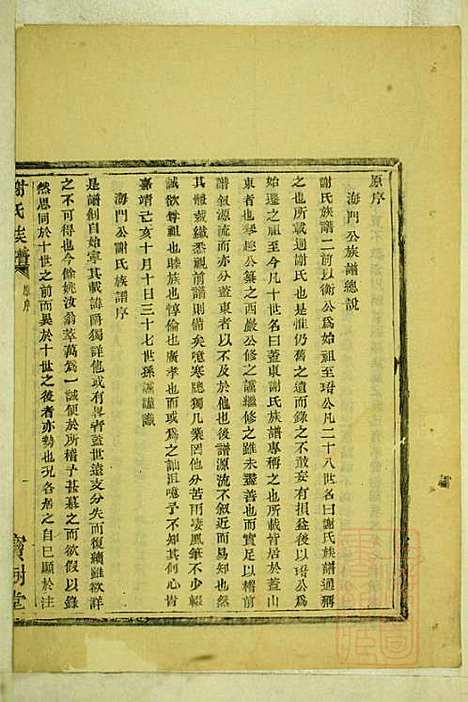 原序
海門公族譜總說
謝氏族譜二前以衡公爲始祖至琦公凡二十八世名曰謝氏族譜通稱
之也所載過謝氏也是惟仍舊之遺錄之不敢妄有損益後以琦公爲
始遷之祖至今凡十世名曰蓋東謝氏族譜專稱之也所載皆居於蓋山
東者也率趣公纂之西嚴公修之誠繼修之雖未盡善也而實足以稽前
譜敍源流而亦分蓋東者以不及於他也後譜源流不敍近而易知也然
其體裁繊悉視前譜則備矣噫寒聰獨几業罔他分苦用凄風筆不少輟
誠欲尊祖也睦族也惇倫也廣孝也而或爲之訕沮噫予不知其何心肯
嘉靖己亥十月十日三十七世孫誠謹識
海門公謝氏族譜序
是譜創自始寧其載諱爵獨詳他或有畧者蓋世遠支分失而復續雖欲詳
之不可得也今餘姚汝翁萃萬爲一誠便於所稽予甚慕之而欲假以錄
然思同於十世之前而異於十世之後者亦勢也况各爲之自已顯於注
謝氏族譜
原序
寶樹堂